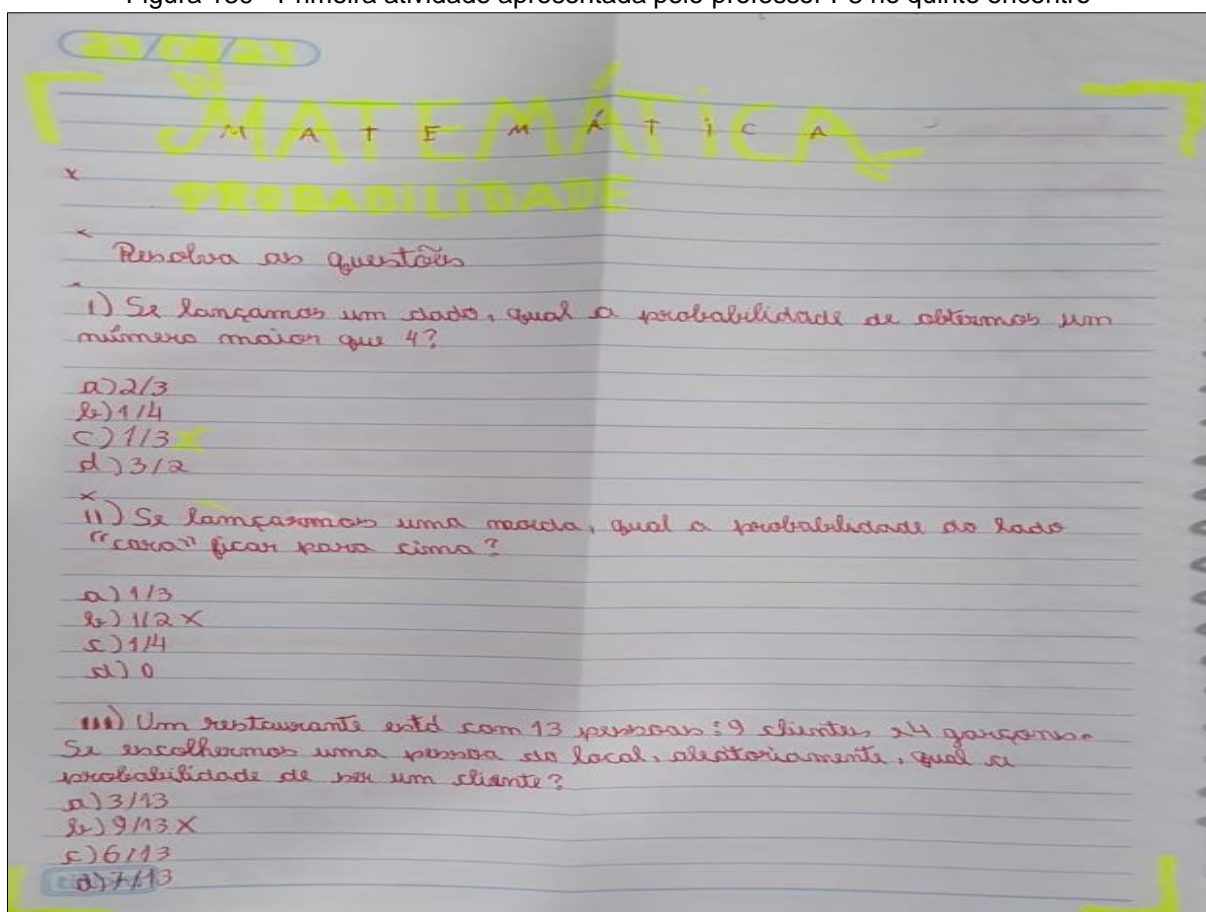 MATEMÁTICA
M A T E M Á T I C A
PROBABILIDADE
Resolva as questões
I) Se lançamos um dado, qual a probabilidade de obtermos um
número maior que 4?
a) 2/3
b) 1/4
c) 1/3 X
d) 3/2
II) Se lançarmos uma moeda, qual a probabilidade do lado
"cara" ficar para cima?
a) 1/3
b) 1/2 X
c) 1/4
d) 0
III) Um restaurante está com 13 pessoas: 9 clientes e 4 garçons.
Se escolhermos uma pessoa do local, aleatoriamente, qual a
probabilidade de ser um cliente?
a) 3/13
b) 9/13 X
c) 6/13
d) 7/13